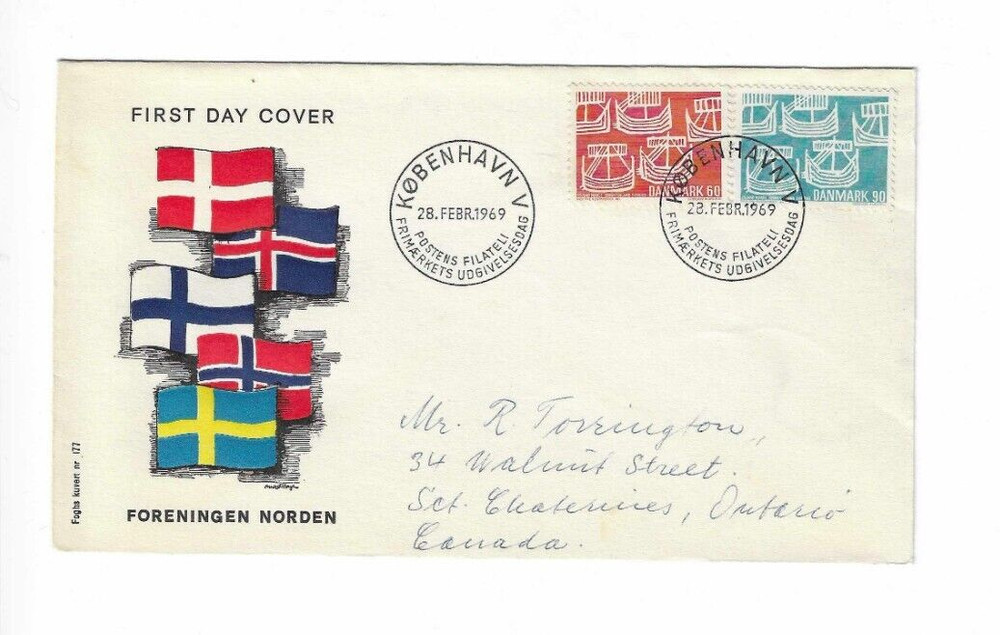 FIRST DAY COVER
KØBENHAVN V
28.FEBR.1969
POSTENS FILATELI
FRIMÆRKETS UDGIVELSESDAG
DANMARK 60
DANMARK 90
KØBENHAVN V
28.FEBR.1969
POSTENS FILATELI
FRIMÆRKETS UDGIVELSESDAG
Mr. R Torrington,
34 Walnut Street.
Sct. Chaterines, Ontario
Canada.
Foghs kuvert nr 177
FORENINGEN NORDEN